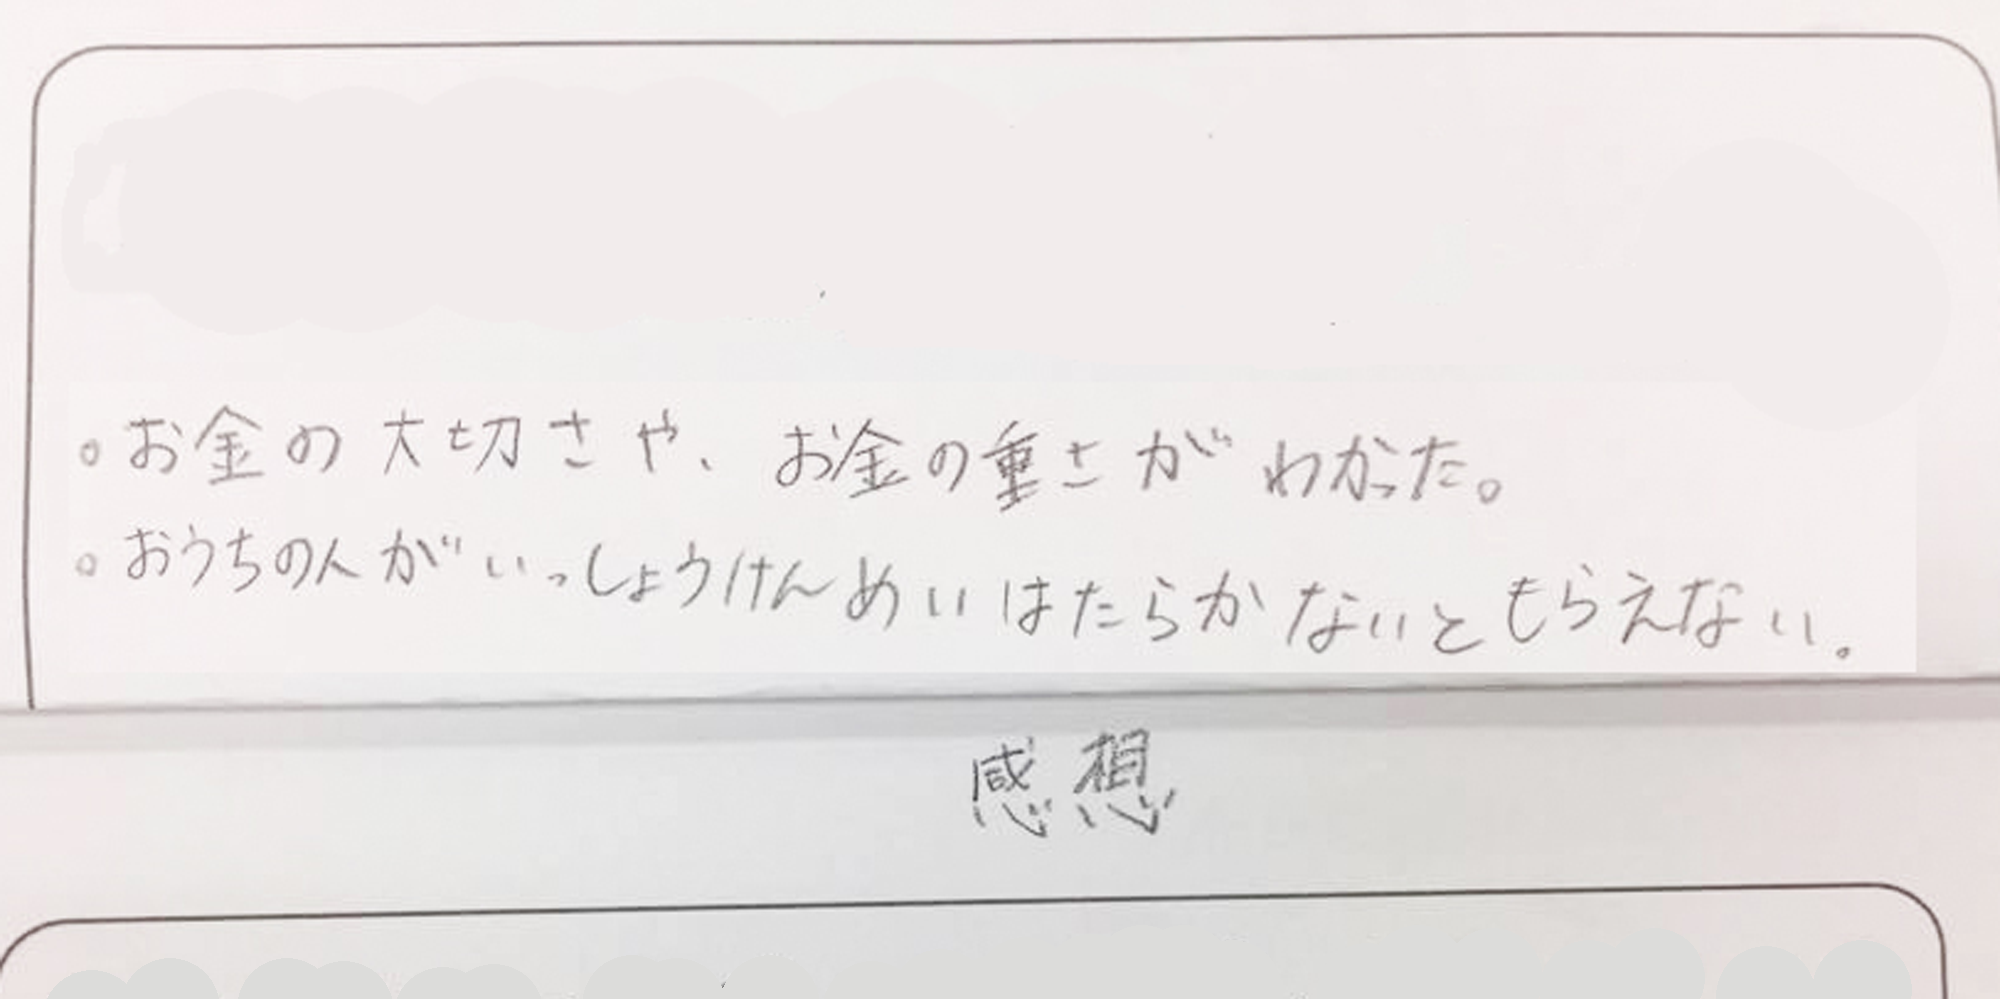 。お金の大切さや、お金の重さがわかった。
。おうちの人がいっしょうけんめいはたらかないともらえない。
感想